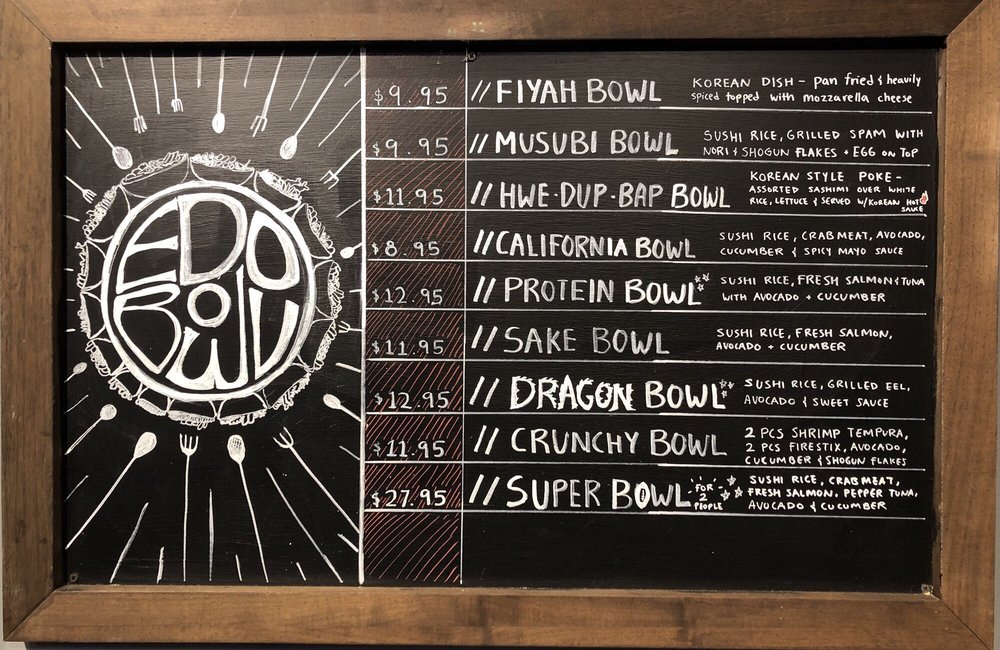 EDO
BOWL
$9.95 // FIYAH BOWL KOREAN DISH - pan fried & heavily
spiced topped with mozzarella cheese
$9.95 // MUSUBI BOWL SUSHI RICE, GRILLED SPAM WITH
NORI & SHOGUN FLAKES + EGG ON TOP
$11.95 // HWE-DUP-BAP BOWL KOREAN STYLE POKE -
ASSORTED SASHIMI OVER WHITE
RICE, LETTUCE & SERVED W/KOREAN HOT
SAUCE
$8.95 // CALIFORNIA BOWL SUSHI RICE, CRAB MEAT, AVOCADO,
CUCUMBER & SPICY MAYO SAUCE
$12.95 // PROTEIN BOWL SUSHI RICE, FRESH SALMON & TUNA
WITH AVOCADO + CUCUMBER
$11.95 // SAKE BOWL SUSHI RICE, FRESH SALMON,
AVOCADO + CUCUMBER
$12.95 // DRAGON BOWL SUSHI RICE, GRILLED EEL,
AVOCADO & SWEET SAUCE
$11.95 // CRUNCHY BOWL 2 PCS SHRIMP TEMPURA,
2 PCS FIRESTIX, AVOCADO,
CUCUMBER & SHOGUN FLAKES
$27.95 // SUPER BOWL FOR 2 PEOPLE SUSHI RICE, CRAB MEAT,
FRESH SALMON, PEPPER TUNA,
AVOCADO & CUCUMBER